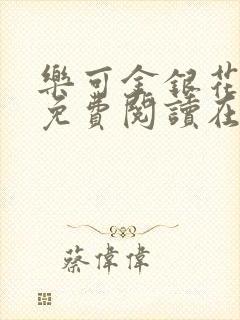 樂可金銀花
免費閱讀在
蔡偉偉